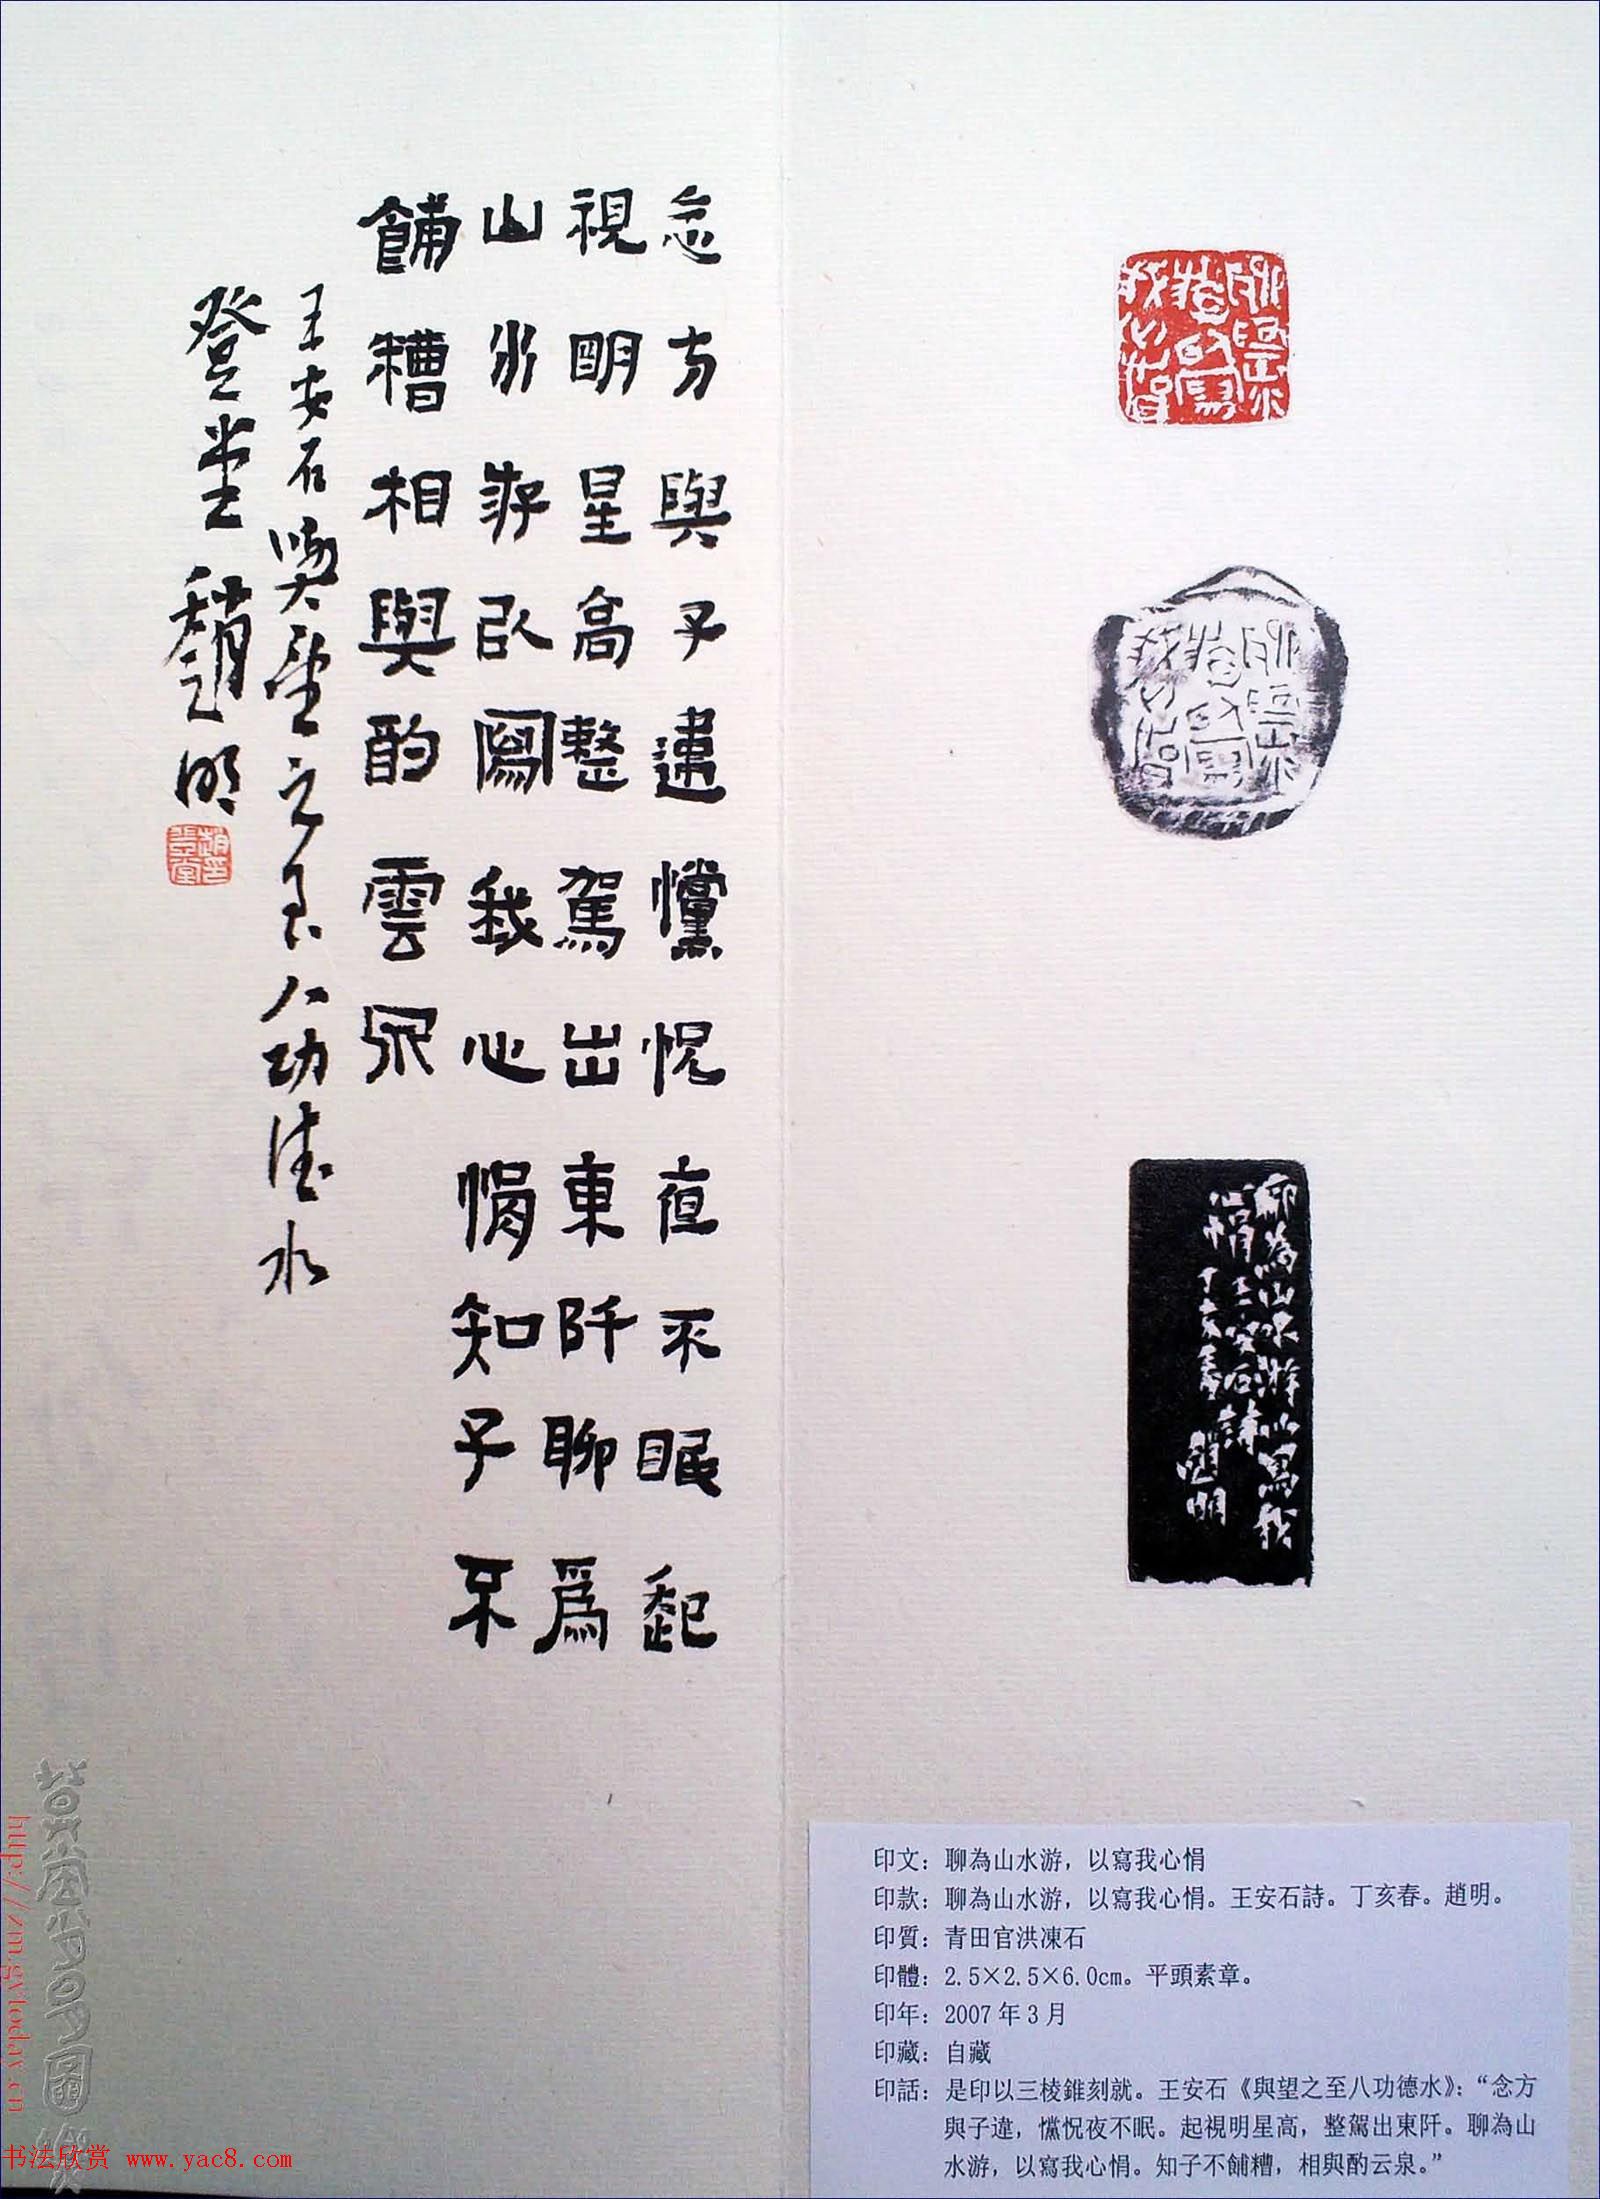 聊為山水游以寫我心悁
聊為山水游以寫我
心悁王安石詩
丁亥春趙明
念方與子違戃怳夜不眠起
視明星高整駕出東阡聊為
山水游以寫我心悁知子不
餔糟相與酌雲泉
王安石與望之至八功德水
登堂趙明
印文：聊為山水游，以寫我心悁
印款：聊為山水游，以寫我心悁。王安石詩。丁亥春。趙明。
印質：青田官洪凍石
印體：2.5×2.5×6.0cm。平頭素章。
印年：2007年3月
印藏：自藏
印話：是印以三棱錐刻就。王安石《與望之至八功德水》：“念方
與子違，戃怳夜不眠。起視明星高，整駕出東阡。聊為山
水游，以寫我心悁。知子不餔糟，相與酌云泉。”
书法欣赏 www.yac8.com